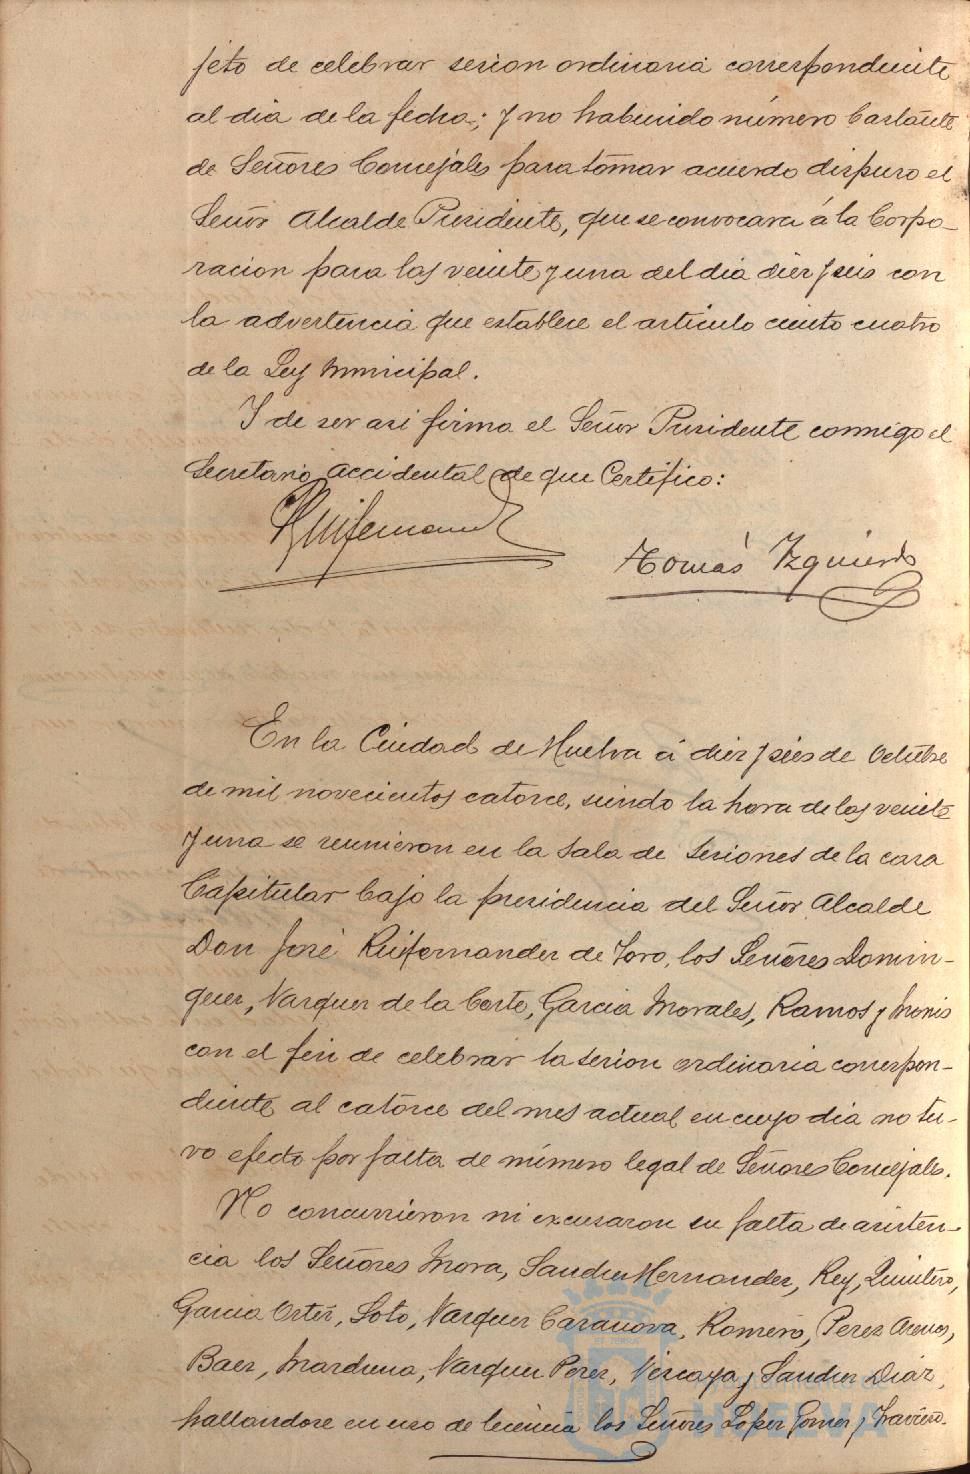 jeto de celebrar sesion ordinaria correspondiente
al dia de la fecha; y no habiendo número bastante
de Señores Concejales para tomar acuerdo dispuso el
Señor Alcalde Presidente, que se convocara á la Corpo-
racion para las veinte y una del dia diez y seis con
la advertencia que establece el artículo ciento cuatro
de la Ley Municipal.
Y de ser asi firma el Señor Presidente conmigo el
Secretario accidental de que Certifico:
Ruifernand
Tomás Izquierdo
En la Ciudad de Huelva á diez y seis de Octubre
de mil novecientos catorce, siendo la hora de las veinte
y una se reunieron en la Sala de Sesiones de la casa
Capitular bajo la presidencia del Señor Alcalde
Don José Ruifernandez de Toro, los Señores Domin-
guez, Vazquez de la Corte, Garcia Morales, Ramos y Monis
con el fin de celebrar la sesion ordinaria correspon-
diente al catorce del mes actual en cuyo dia no tu-
vo efecto por falta de número legal de Señores Concejales.
No concurrieron ni excusaron su falta de asisten-
cia los Señores Mora, Sanchez Hernandez, Rey, Quintero,
Garcia Ortiz, Soto, Vazquez Casanova, Romero, Perez
Baez, Marchena, Vazquez Perez, Vizcaya y Sanchez Diaz,
hallandose en uso de licencia los Señores Lopez Gomez y
Ayuntamiento de
HUELVA